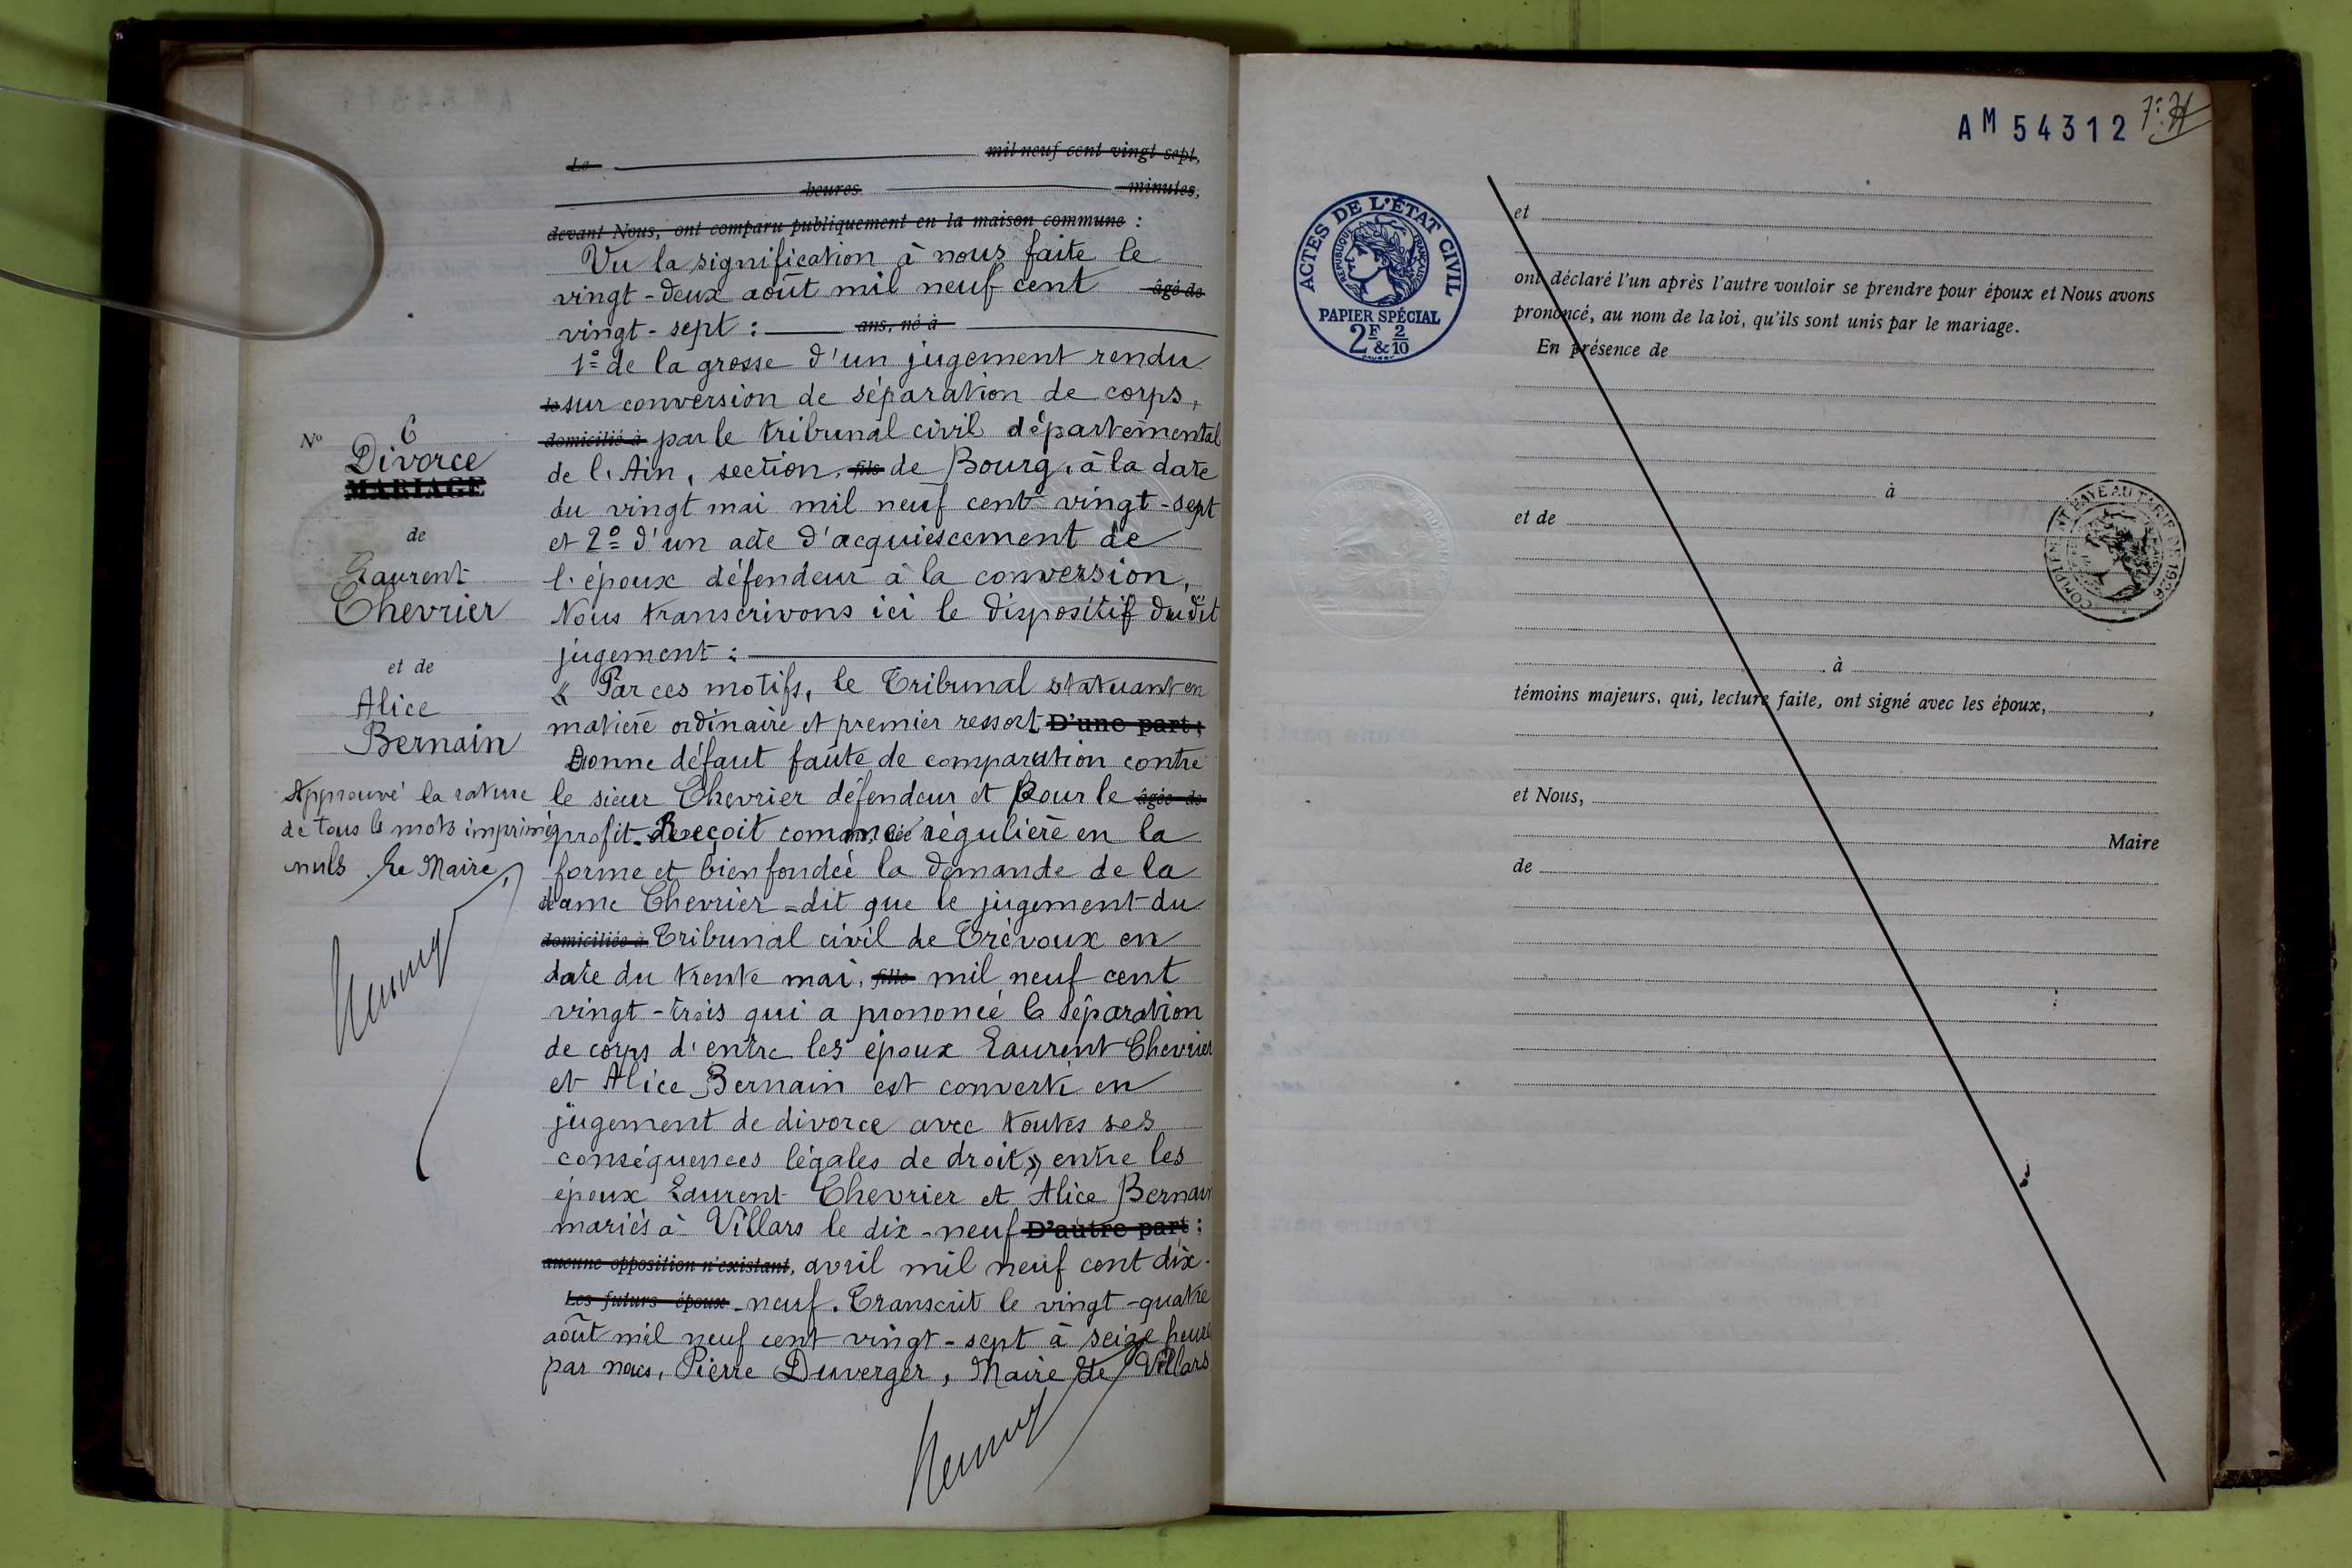 Le mil neuf cent vingt sept,
heures minutes,
devant Nous, ont comparu publiquement en la maison commune :
Vu la signification à nous faite le
vingt-deux août mil neuf cent âgé de
vingt-sept : ans, né à
1º de la grosse d'un jugement rendu
le sur conversion de séparation de corps,
domicilié à par le tribunal civil départemental
de l'Ain, section, fils de Bourg, à la date
du vingt mai mil neuf cent vingt-sept
et 2º d'un acte d'acquiescement de
l'époux défendeur à la conversion,
Nous transcrivons ici le dispositif dudit
jugement :
« Par ces motifs, le Tribunal statuant en
matière ordinaire et premier ressort D'une part ;
Donne défaut faute de comparution contre
le sieur Chevrier défendeur et Pour le âgée de
profit. Reçoit comme régulière en la
forme et bien fondée la demande de la
dame Chevrier = dit que le jugement du
domiciliée à Tribunal civil de Trévoux en
date du trente mai, fille mil neuf cent
vingt-trois qui a prononcé la séparation
de corps d'entre les époux Laurent Chevrier
et Alice Bernain est converti en
jugement de divorce avec toutes ses
conséquences légales de droit » entre les
époux Laurent Chevrier et Alice Bernain
mariés à Villars le dix-neuf D'autre part ;
aucune opposition n'existant, avril mil neuf cent dix-
Les futurs époux neuf. Transcrit le vingt-quatre
août mil neuf cent vingt-sept à seize heures
par nous, Pierre Duverger, Maire de Villars
Nº 6
Divorce
MARIAGE
de
Laurent
Chevrier
et de
Alice
Bernain
Approuvé la rature
de tous le mots imprimés
nuls. Le Maire,
AM 54312
ACTES DE L'ÉTAT CIVIL
RÉPUBLIQUE FRANÇAISE
PAPIER SPÉCIAL
2F & 2/10
et
ont déclaré l'un après l'autre vouloir se prendre pour époux et Nous avons
prononcé, au nom de la loi, qu'ils sont unis par le mariage.
En présence de
à
et de
COMPLÉMENT PAYÉ AU TARIF DE 1926
à
témoins majeurs, qui, lecture faite, ont signé avec les époux, ,
et Nous,
Maire
de